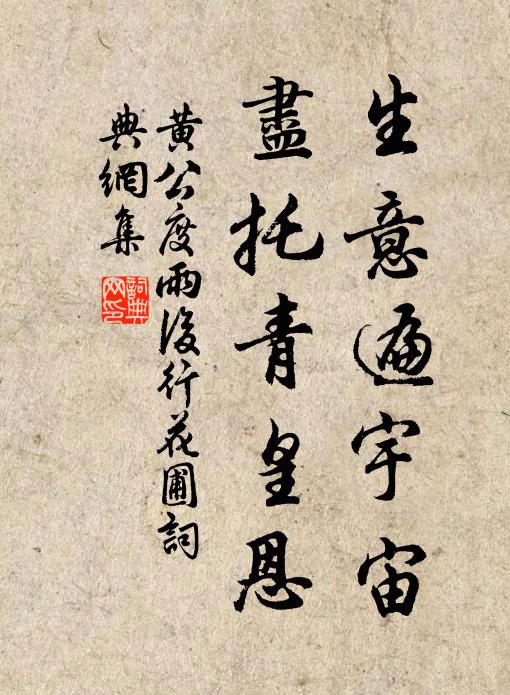 生意遍宇宙
盡托青皇恩
黄公度雨後行花圃詞
典網集
詞典
网印